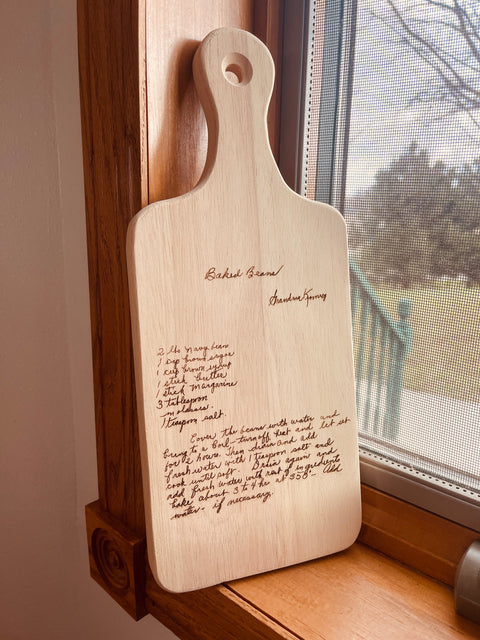 Baked Beans
Grandma
2 lbs Navy beans
1 cup brown sugar
1 cup brown syrup
1 stick butter
1 stick Margarine
3 tablespoon
molasses.
1 teaspoon salt.
Cover the beans with water and
bring to a boil - turn off heat and let set
for 2 hours. Then drain and add
fresh water with 1 teaspoon salt and
cook until soft. Drain again and
add fresh water with rest of ingredients
bake about 3 to 4 hr at 350°- Add
water - if necessary.